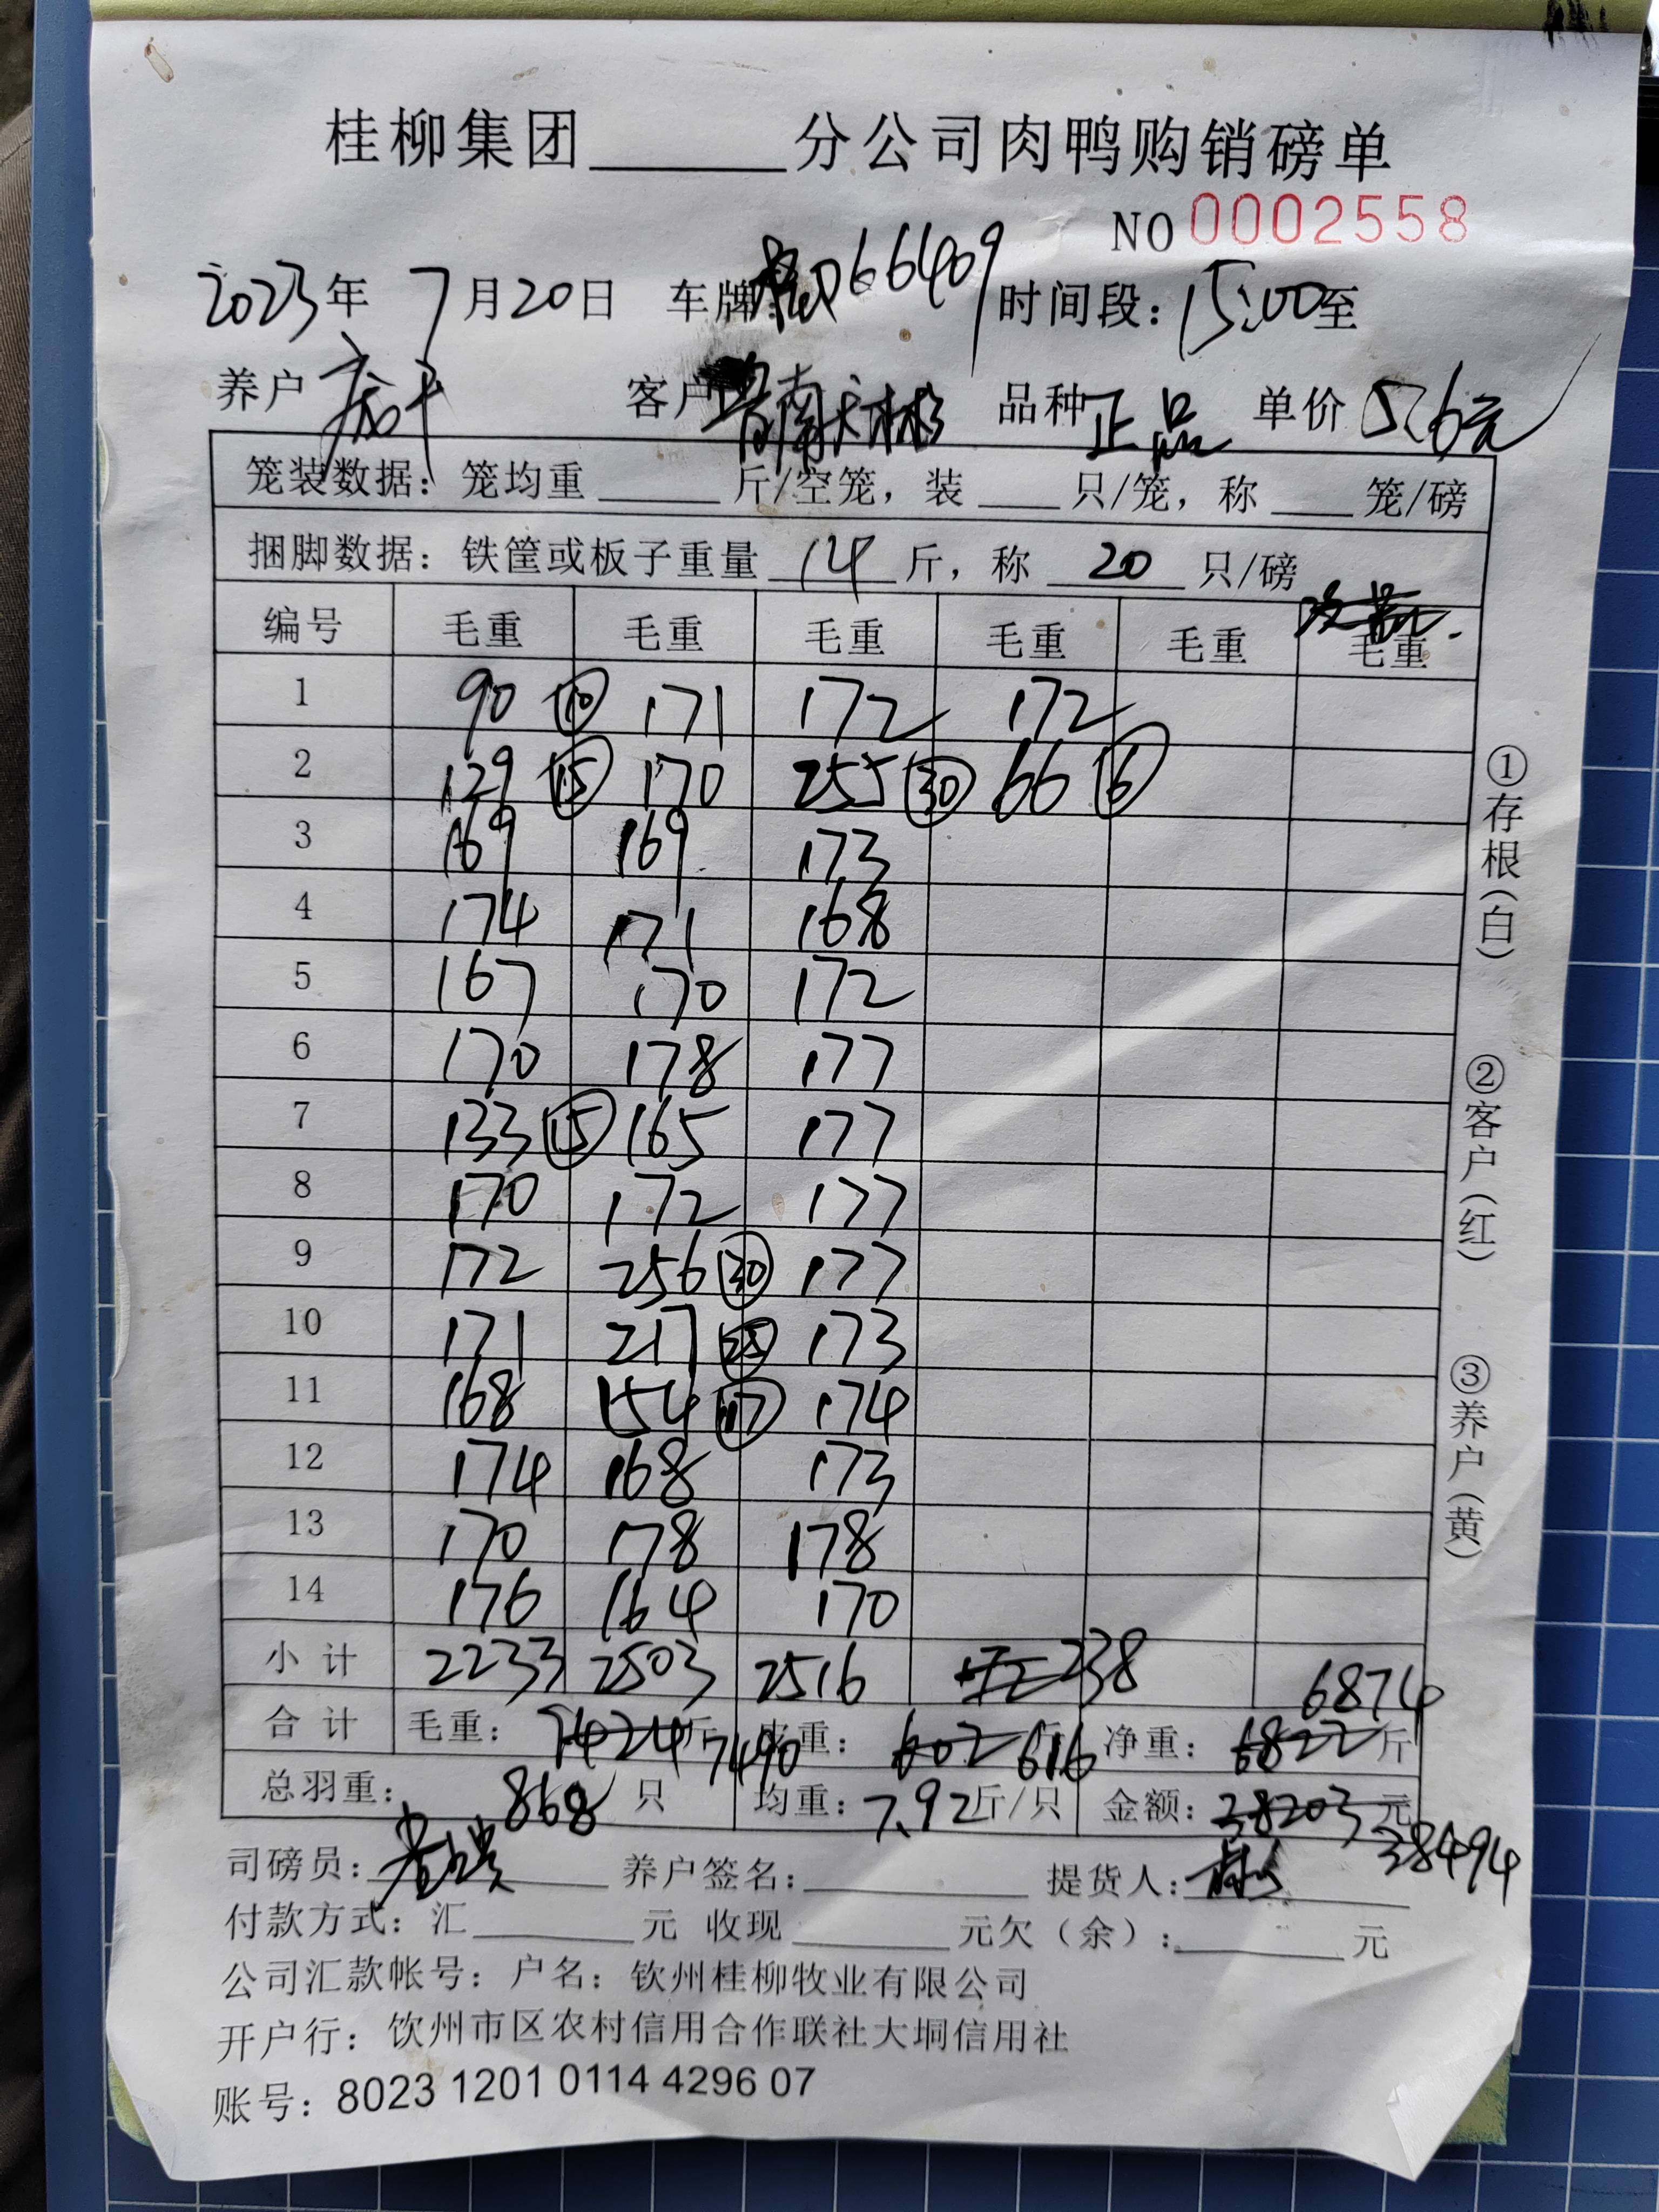 桂柳集团______分公司肉鸭购销磅单
NO 0002558
2023年 7月20日 车牌 D66409 时间段：15:00至
养户 客户 南 品种 正品 单价 5.6元
笼装数据：笼均重____斤/空笼，装___只/笼，称___笼/磅
捆脚数据：铁筐或板子重量 14 斤，称 20 只/磅
编号 毛重 毛重 毛重 毛重 毛重 毛重
1 90 ⑩ 171 172 172
2 129 ⑮ 170 255 ㉚ 66 ⑥
3 169 169 173
4 174 171 168
5 167 170 172
6 170 178 177
7 133 ⑮ 165 177
8 170 172 177
9 172 256 ㉚ 177
10 171 217 ㉕ 173
11 168 154 ⑰ 174
12 174 168 173
13 170 178 178
14 176 164 170
小计 2233 2503 2516 238
6874
合计 毛重：7424斤 7490 重：602 616 净重：6822斤
总羽重：868只 均重：7.92斤/只 金额：38203元
38494
司磅员： 养户签名： 提货人：
付款方式：汇______元 收现______元欠（余）：______元
公司汇款帐号：户名：钦州桂柳牧业有限公司
开户行：钦州市区农村信用合作联社大垌信用社
账号：8023 1201 0114 4296 07
①存根（白）
②客户（红）
③养户（黄）